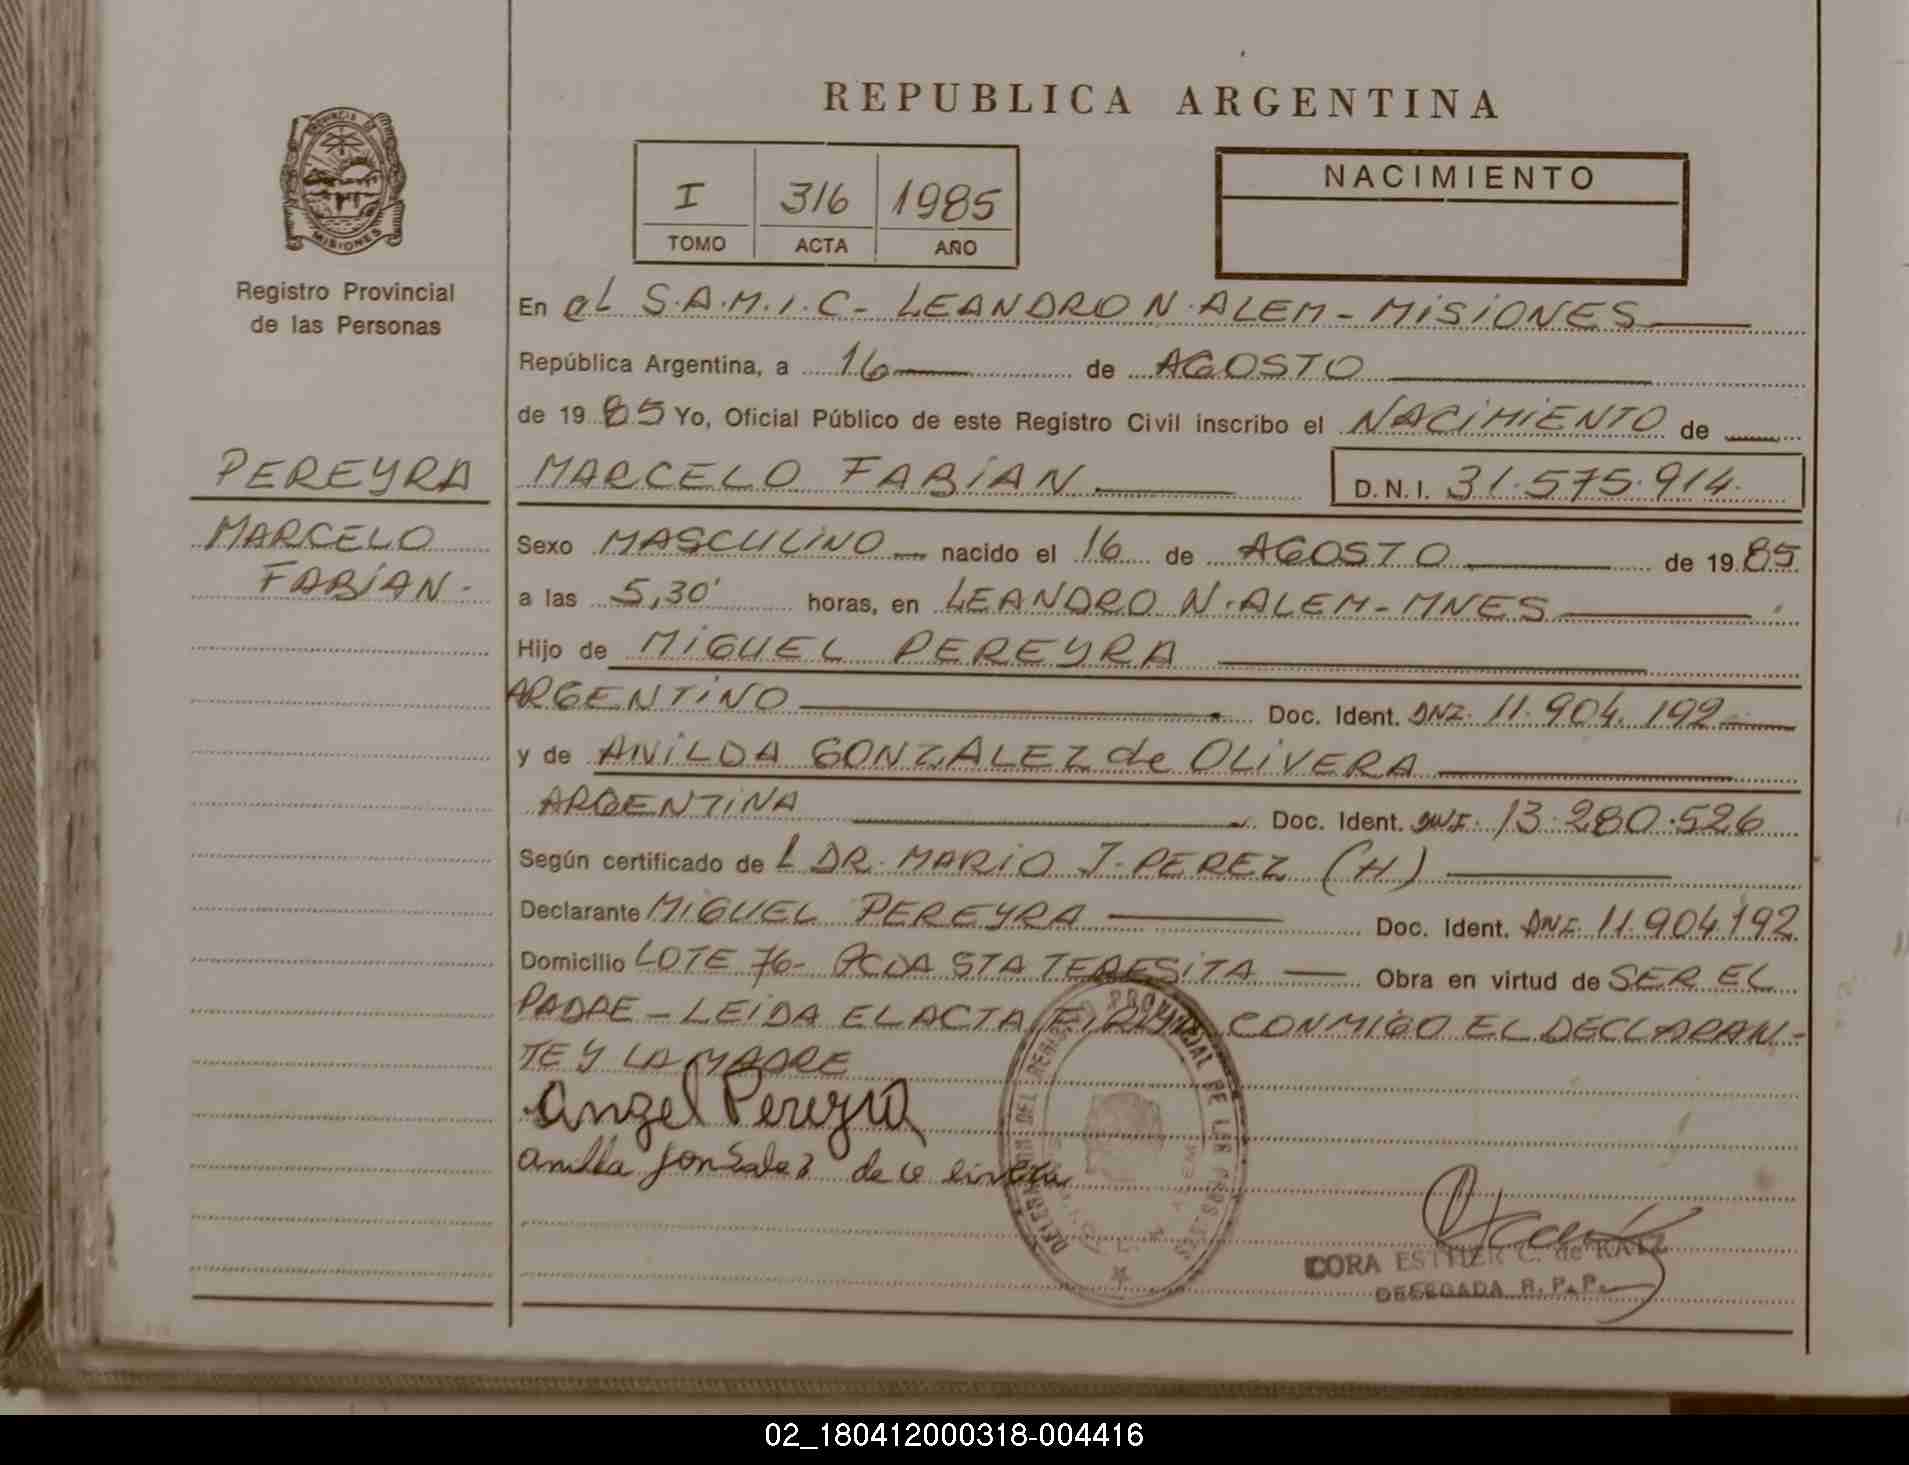 REPUBLICA ARGENTINA
PROVINCIA DE
MISIONES
Registro Provincial
de las Personas
I 316 1985
TOMO ACTA AÑO
NACIMIENTO
En el S.A.M.I.C- LEANDRO N. ALEM - MISIONES
República Argentina, a 16 de AGOSTO
de 1985 Yo, Oficial Público de este Registro Civil inscribo el NACIMIENTO de
PEREYRA
MARCELO
FABIAN-
MARCELO FABIAN D.N.I. 31.575.914.
Sexo MASCULINO nacido el 16 de AGOSTO de 1985
a las 5,30' horas, en LEANDRO N. ALEM - MNES
Hijo de MIGUEL PEREYRA
ARGENTINO Doc. Ident. DNI. 11.904.192
y de ANILDA GONZALEZ de OLIVERA
ARGENTINA Doc. Ident. DNI. 13.280.526
Según certificado del DR. MARIO J. PEREZ (H)
Declarante MIGUEL PEREYRA Doc. Ident. DNI. 11.904.192
Domicilio LOTE 76- PCDA STA TERESITA Obra en virtud de SER EL
PADRE - LEIDA EL ACTA FIRMA CONMIGO EL DECLARAN-
TE Y LA MADRE
Angel Pereyra
Anilda Gonzalez de Olivera
DELEGACION DEL REGISTRO PROVINCIAL DE LAS PERSONAS
CORA ESTHER C. de KATZ
DELEGADA R.P.P.
02_180412000318-004416